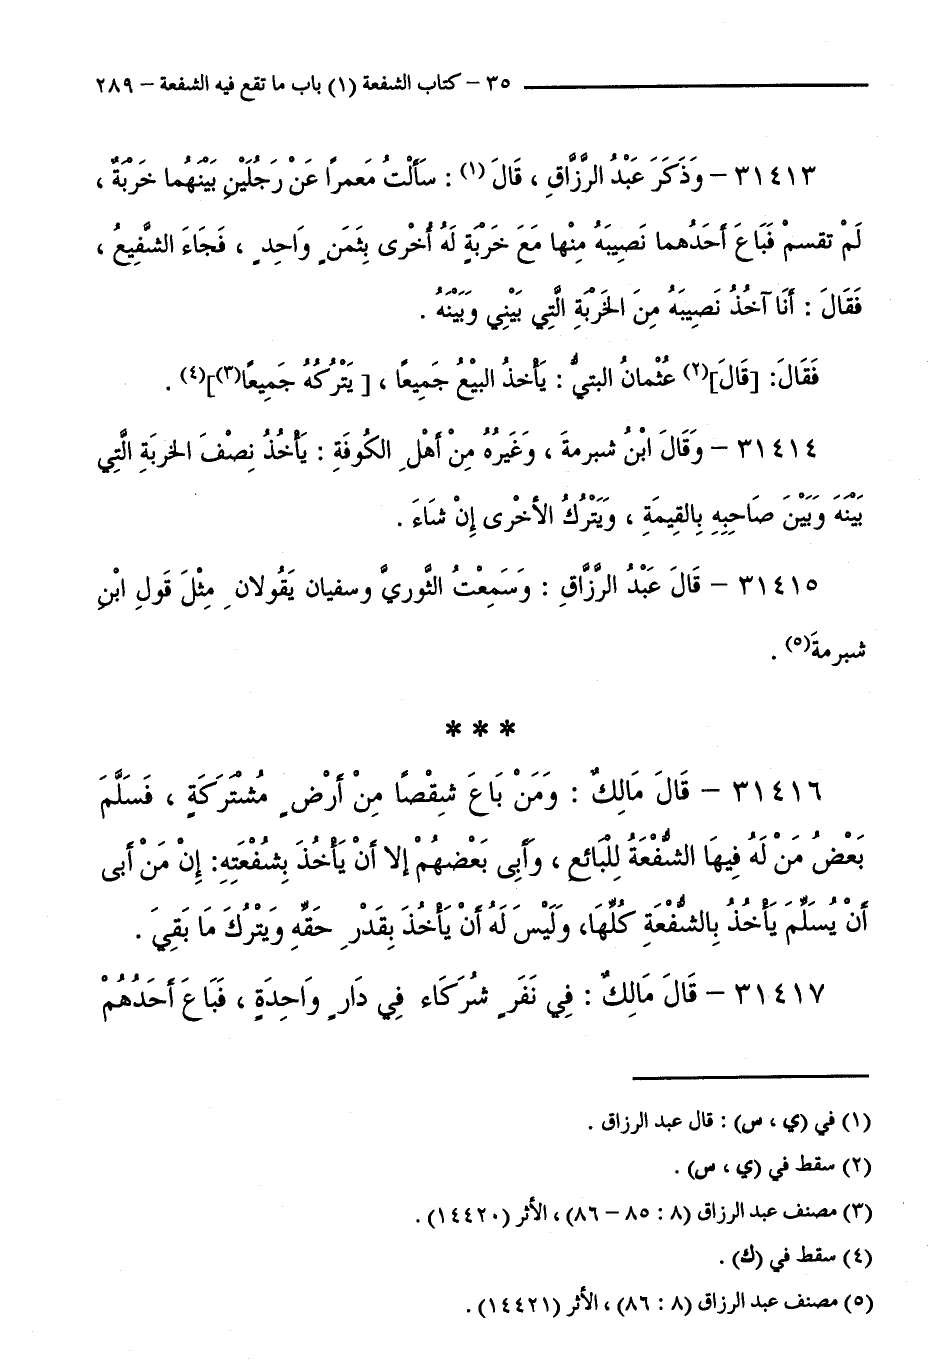 ٣٥ – كتاب الشفعة (١) باب ما تقع فيه الشفعة – ٢٨٩
٣١٤١٣ – وَذَكَرَ عَبْدُ الرَّزَّاقِ ، قَالَ (١) : سَأَلْتُ مَعمراً عَنْ رَجُلَيْنِ بَيْنَهُما خَرْبَةٌ ،
لَمْ تقسمْ فَبَاعَ أَحَدُهما نَصِيبَهُ مِنْها مَعَ خَرْبَةٍ لَهُ أُخْرى بِثَمَنٍ وَاحِدٍ ، فَجَاءَ الشَّفِيعُ ،
فَقَالَ : أَنَا آخُذُ نَصِيبَهُ مِنَ الخَرْبَةِ الَّتِي بَيْنِي وَبَيْنَهُ .
فَقَالَ: [قَالَ](٢) عُثْمانُ البتيُّ : يَأخذُ البَيْعُ جَمِيعًا ، [ يَتْرُكُهُ جَمِيعًا(٣)](٤) .
٣١٤١٤ – وَقَالَ ابْنُ شبرمةَ ، وَغَيْرُهُ مِنْ أهْلِ الكُوفَةِ : يَأخُذُ نِصْفَ الخربَةِ الَّتِي
بَيْنَهَ وَبَيْنَ صَاحِبِهِ بِالقِيمَةِ ، وَيَتْرُكُ الأخْرى إِنْ شَاءَ .
٣١٤١٥ – قَالَ عَبْدُ الرَّزَّاقِ : وَسَمِعْتُ الثَّوريَّ وسفيان يَقُولانِ مِثْلَ قَولِ ابْنِ
شبرمةَ(٥) .
* * *
٣١٤١٦ – قَالَ مَالِكٌ : وَمَنْ بَاعَ شِقْصًا مِنْ أَرْضٍ مُشْتَرَكَةٍ ، فَسَلَّمَ
بَعْضُ مَنْ لَهُ فِيهَا الشُّفْعَةُ لِلْبَائِعِ ، وَأَبِى بَعْضهُمْ إلا أَنْ يَأْخُذَ بِشُفْعَتِهِ: إِنْ مَنْ أَبى
أَنْ يُسَلِّمَ يَأْخُذُ بِالشُّفْعَةِ كُلِّهَا، وَلَيْسَ لَهُ أَنْ يَأْخُذَ بِقَدْرِ حَقِّهِ وَيَتْرُكَ مَا بَقِيَ .
٣١٤١٧ – قَالَ مَالِكٌ : فِي نَفَرٍ شُرَكَاء فِي دَارٍ وَاحِدَةٍ ، فَبَاعَ أَحَدُهُمْ
(١) في (ي ، س) : قال عبد الرزاق .
(٢) سقط في (ي ، س) .
(٣) مصنف عبد الرزاق (٨ : ٨٥ – ٨٦) ، الأثر (١٤٤٢٠) .
(٤) سقط في (ك) .
(٥) مصنف عبد الرزاق (٨ : ٨٦) ، الأثر (١٤٤٢١) .